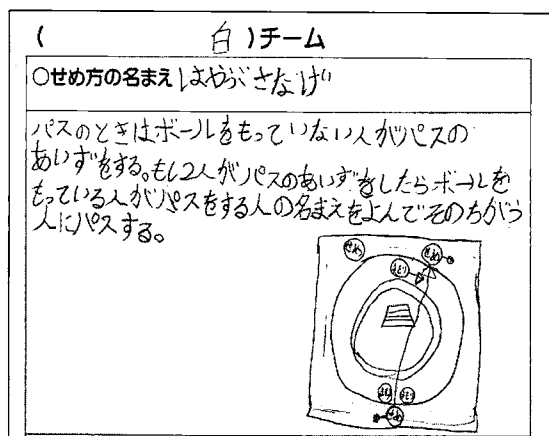 ( 白 )チーム
○せめ方の名まえ はやぶさなげ
パスのときはボールをもっていない人がパスの
あいずをする。もし2人がパスのあいずをしたらボールを
もっている人がパスをする人の名まえをよんでそのちがう
人にパスする。
せめ
せめ